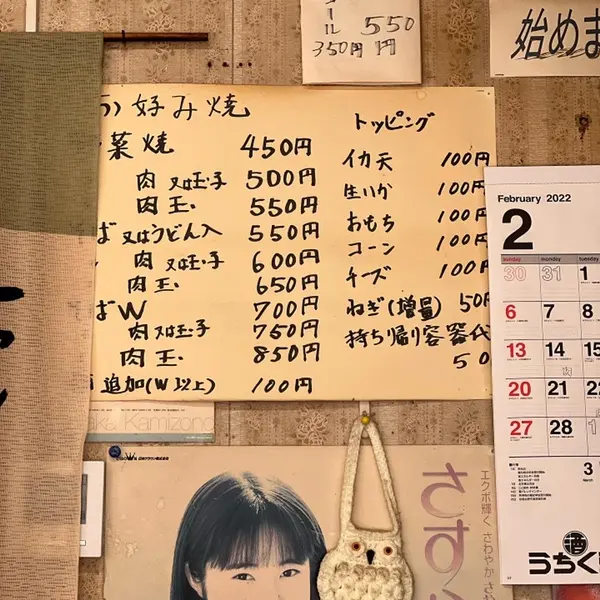 ール 550
350円 円
始めま
お好み焼
菜焼 450円
肉 又は玉子 500円
肉玉 550円
ば又はうどん入 550円
肉 又は玉子 600円
肉玉 650円
ばW 700円
肉又は玉子 750円
肉玉 850円
追加(W以上) 100円
トッピング
イカ天 100円
生いか 100円
おもち 100円
コーン 100円
チーズ 100円
ねぎ(増量) 50円
持ち帰り容器代
50
February 2022
2
sunday monday tuesday
30 31 1
6 7 8
13 14 15
20 21 22
27 28 1
3
March
酒
うちく
Kamizono
さす
エクボ輝く さわやか